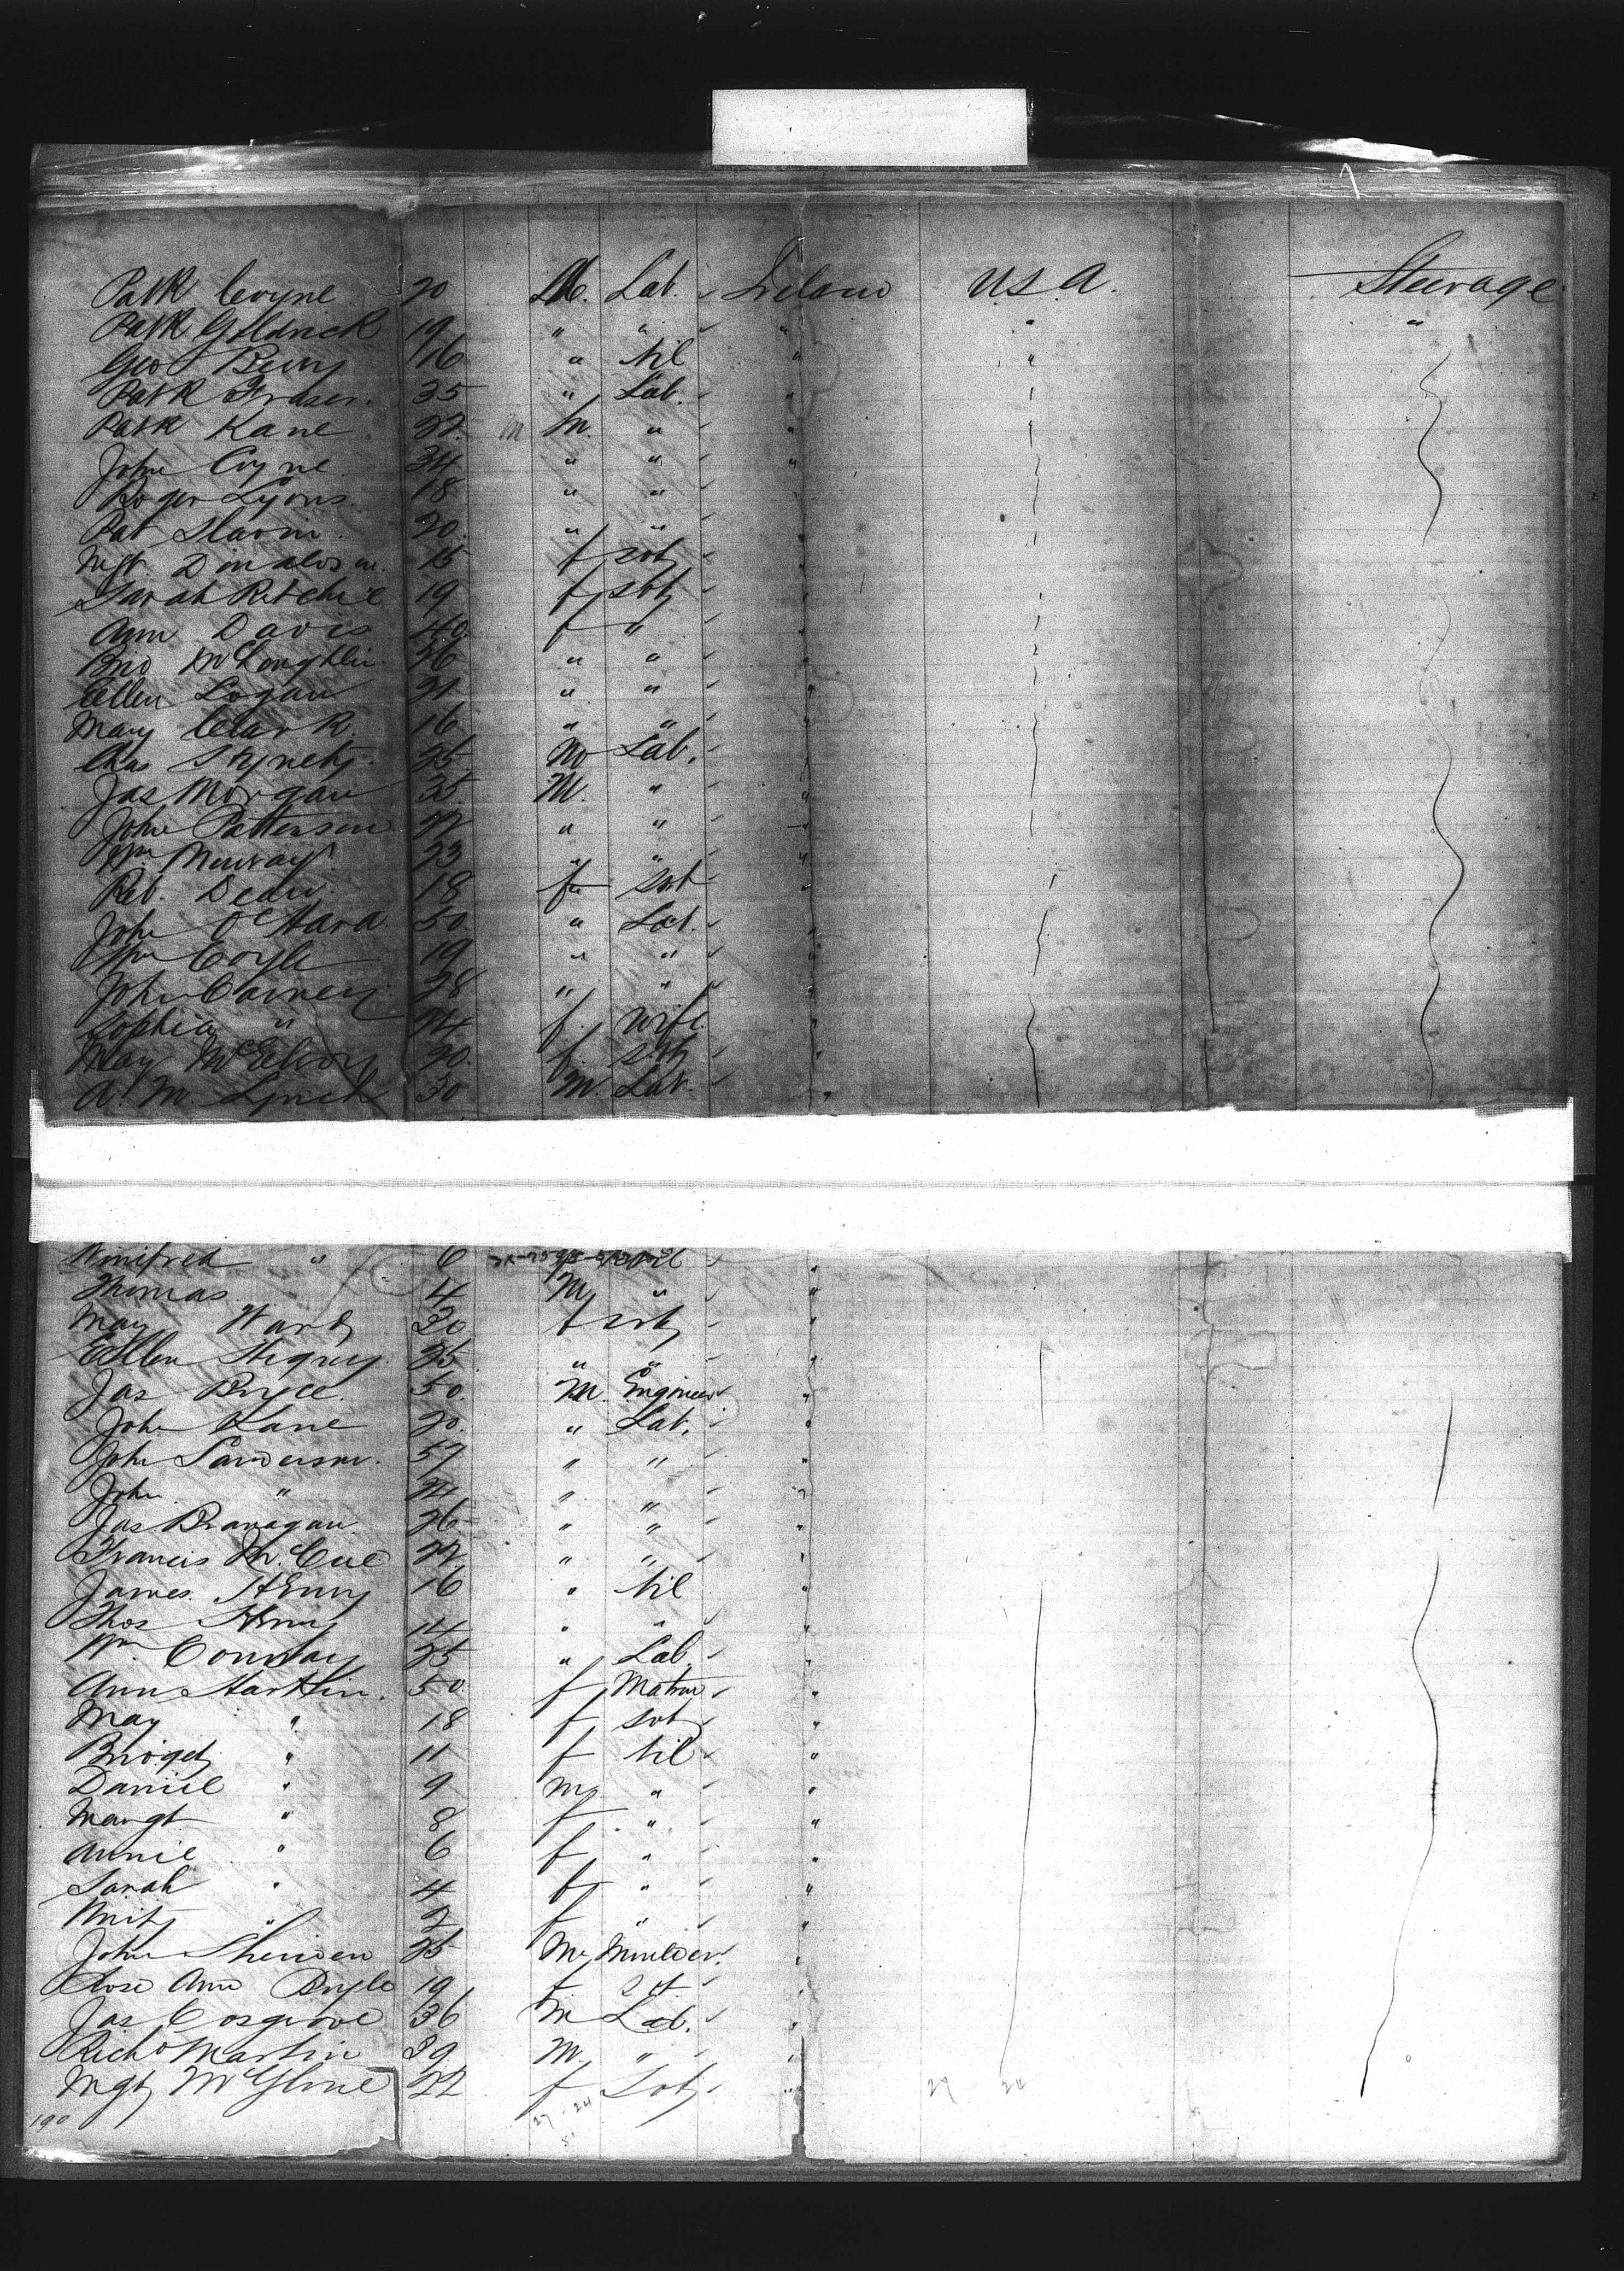 Patk Coyne 20 M. Lab. Ireland U.S.A. Steerage
Patk Goldrick 19 " " " " "
Geo 16 " Nil " "
Patk Fraser. 35 " Lab. "
Patk Kane 22 M. " "
John Coyne 34 " " "
Roger Lyons. 18 " "
Pat Slavin 20. " "
Mgt. Donaldson. 15 f svt
Sarah Ritchie 19 f svt
Ann Davis 40 f "
Brid McLoughlin 26 " "
Ellen Logan 21 " "
Mary Clark. 16 " "
Chas 25 M Lab.
Jas Morgan 35 M. "
John Patterson 22 " "
Wm Murray 23 " "
Reb. Dean. 18 f svt
John O'Hara 50 " Lab.
Wm Coyle 19 " "
John Carney 28 " "
Sophia " 24 f. wife
May McElroy 20. f. svt
A. M. Lynch 30 M. Lab.
Winifred " 6 Nil
Thomas 4 M "
May Ward 20 f svt
Ellen 25 " "
Jas Bryce. 50. M. Engineer
John Kane 20. " Lab.
John Sanderson. 57 " "
John " 24 " "
Jas Branagan 26 " "
Francis McCue 22 " "
James Henry 16 " Nil
Thos Henry 14 " "
Wm. Conway 25 " Lab.
Ann Harkin. 50 f Matron
May " 18 f svt
Bridget " 11 f Nil
Daniel " 9 M "
Margt " 8 f "
Annie " 6 f "
Sarah " 4 f "
" 2 f "
John Sheridan 25 M Moulder
Rose Ann Boyle 19 f svt
Jas Cosgrove 36 M Lab.
Richd Martin 39 M. "
Mgt McGlone 22 f Svt
190